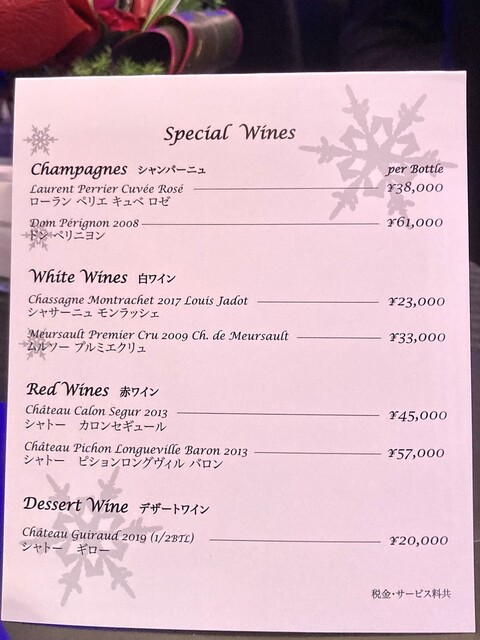 Special Wines
Champagnes シャンパーニュ per Bottle
Laurent Perrier Cuvée Rosé ¥38,000
ローラン ペリエ キュベ ロゼ
Dom Pérignon 2008 ¥61,000
ドン ペリニヨン
White Wines 白ワイン
Chassagne Montrachet 2017 Louis Jadot ¥23,000
シャサーニュ モンラッシェ
Meursault Premier Cru 2009 Ch. de Meursault ¥33,000
ムルソー プルミエクリュ
Red Wines 赤ワイン
Château Calon Segur 2013 ¥45,000
シャトー カロンセギュール
Château Pichon Longueville Baron 2013 ¥57,000
シャトー ピションロングヴィル バロン
Dessert Wine デザートワイン
Château Guiraud 2019 (1/2BTL) ¥20,000
シャトー ギロー
税金・サービス料共